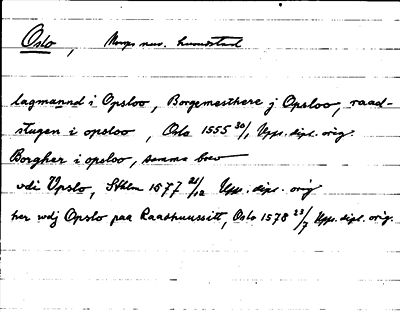 Oslo, Norges nuv. huvudstad
lagmannd i Opsloo, Borgemesthere j Opsloo, raad-
stugen i opsloo, Oslo 1555 30/1 Upps. dipl. orig.
Borgher i opsloo, samma brev
vdi Vpslo, Sthlm 1577 21/12 Upp. dipl. orig
her wdj Opslo paa Raadhuussitt, Oslo 1578 23/7 Upps. dipl. orig.